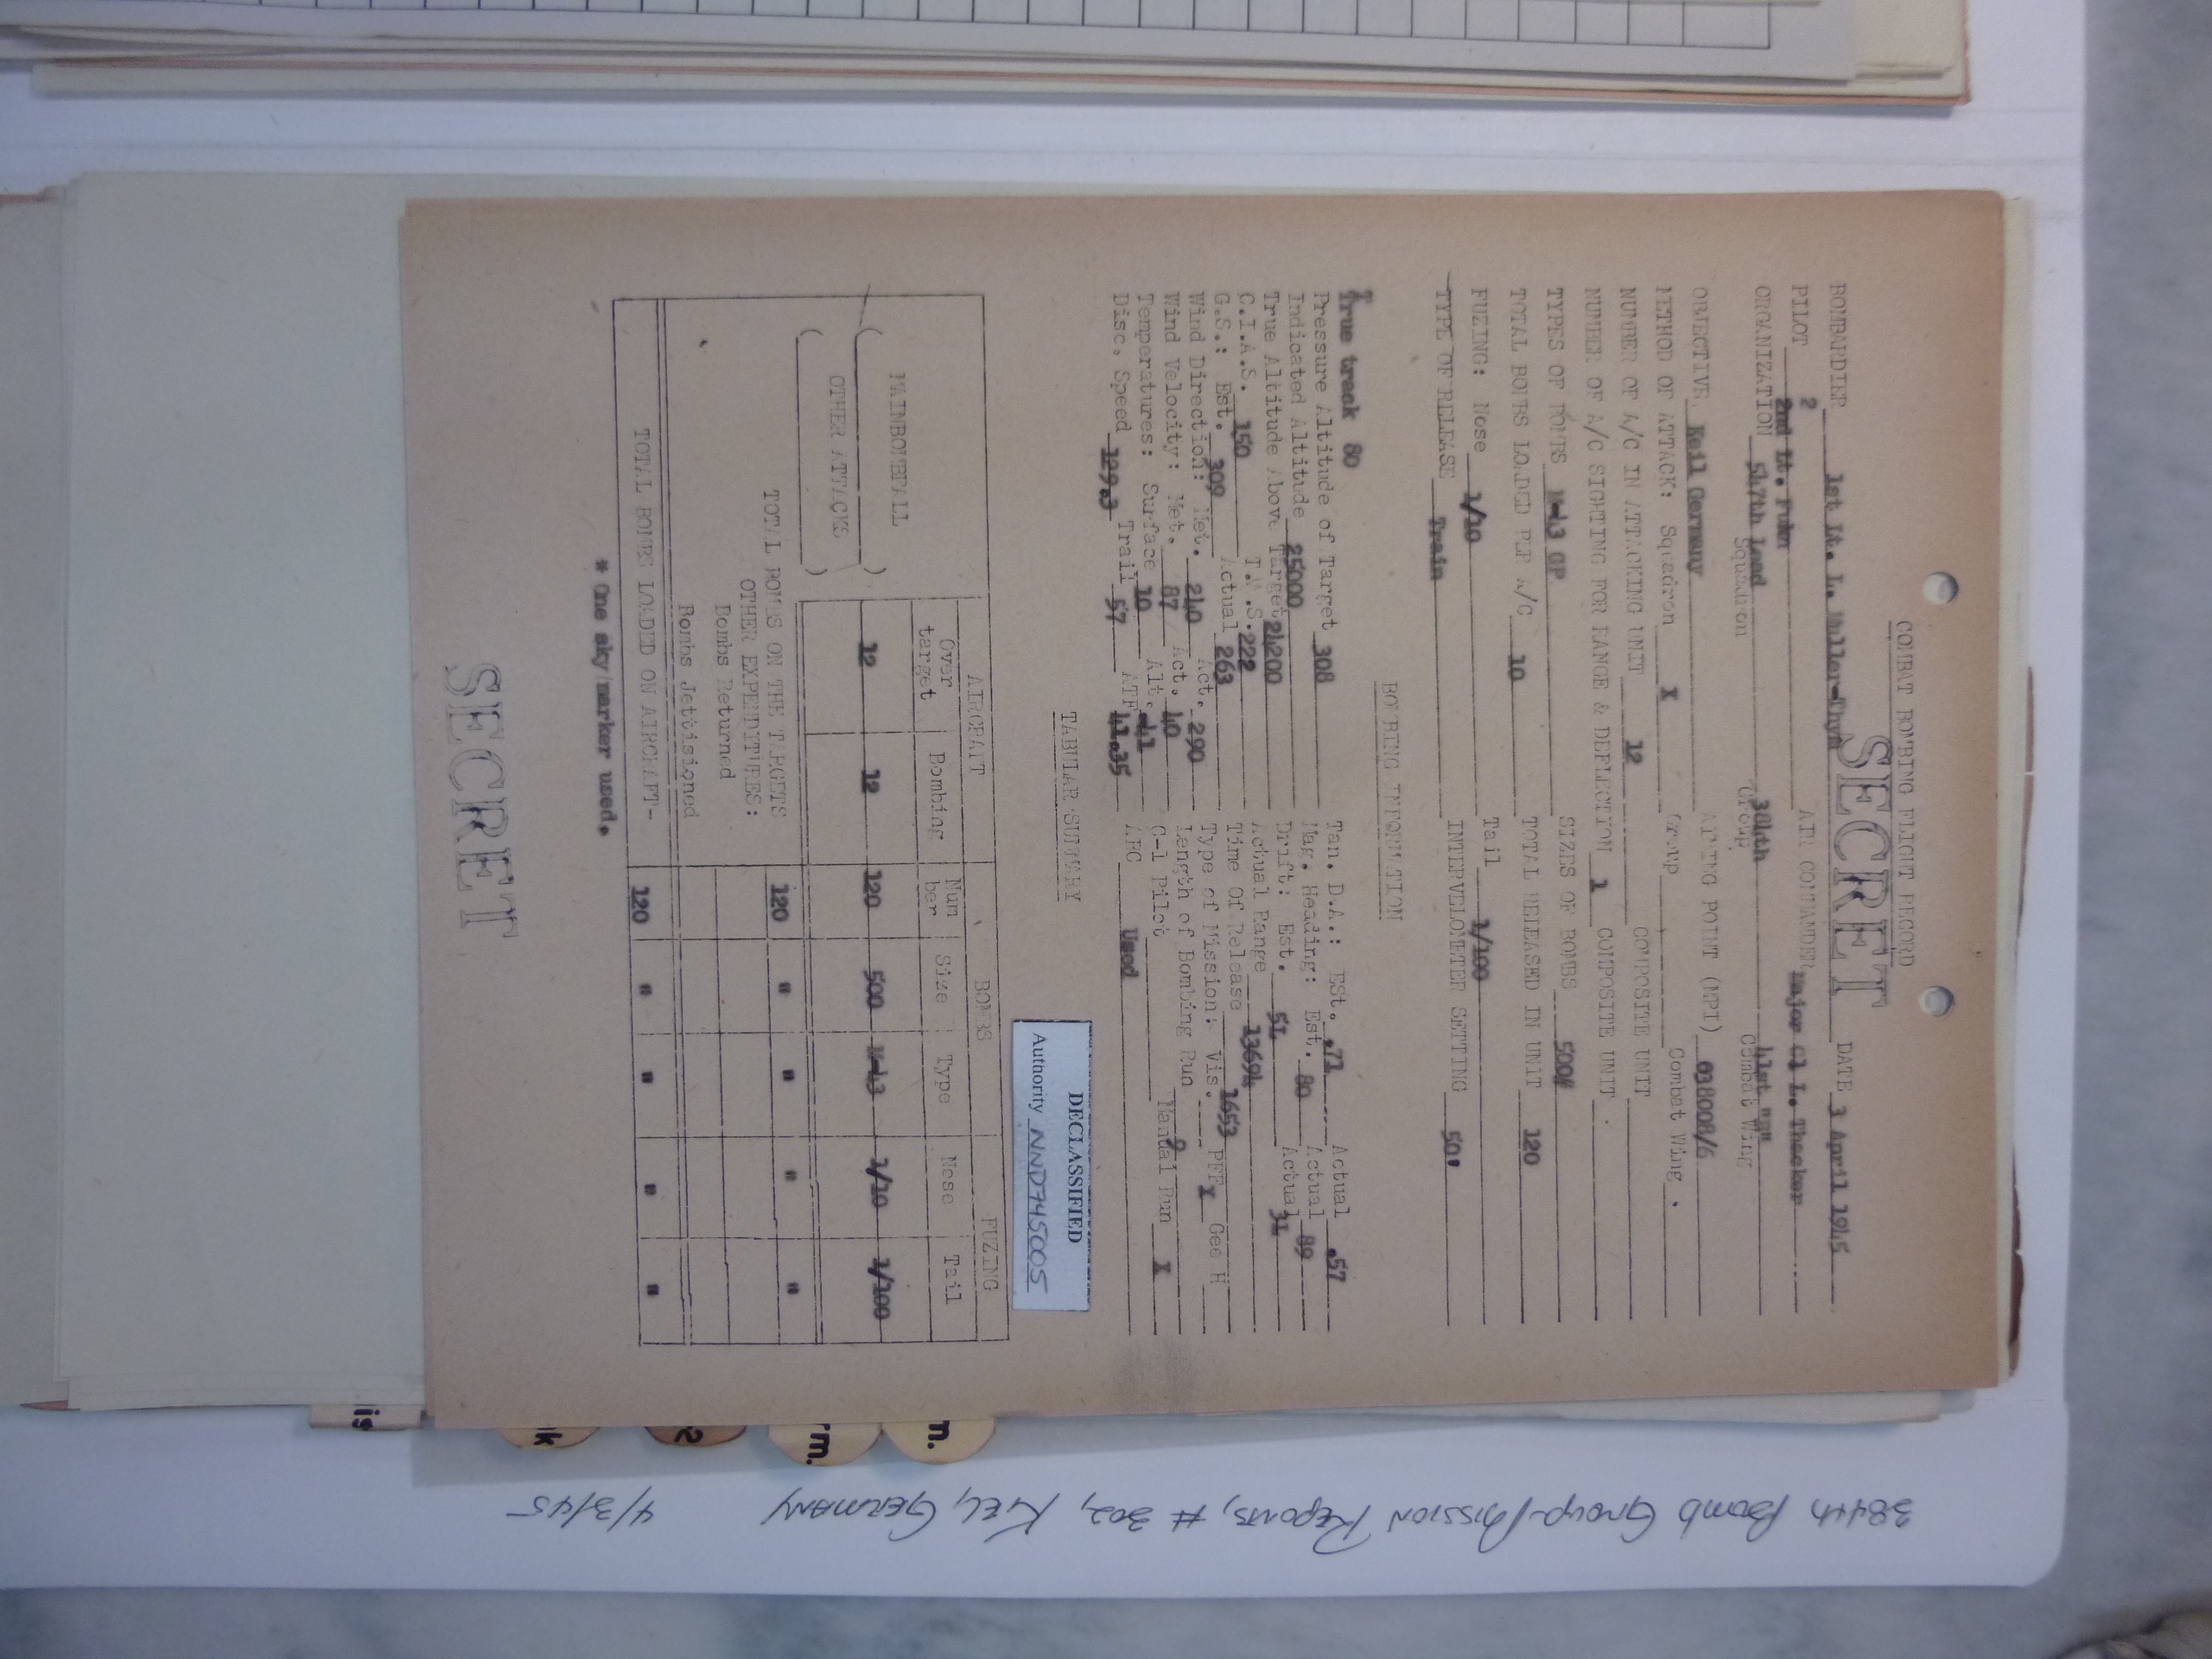 COMBAT BOMBING FLIGHT RECORD
SECRET
BOMBARDIER 1st Lt. L. Muller-Thym DATE 3 April 1945
PILOT 2nd Lt. Fuhn AIR COMMANDER Major Cl L. Thacker
2
ORGANIZATION 547th Lead 384th 41st "B"
Squadron Group Combat Wing
OBJECTIVE Keil Germany AIMING POINT (MPI) 038008/6
METHOD OF ATTACK: Squadron X Group Combat Wing .
NUMBER OF A/C IN ATTACKING UNIT 12 COMPOSITE UNIT
NUMBER OF A/C SIGHTING FOR RANGE & DEFLECTION 1 COMPOSITE UNIT .
TYPES OF BOMBS M-43 GP SIZES OF BOMBS 500#
TOTAL BOMBS LOADED PER A/C 10 TOTAL RELEASED IN UNIT 120
FUZING: Nose 1/10 Tail 1/100
TYPE OF RELEASE Train INTERVELOMETER SETTING 50'
BOMBING INFORMATION
True track 80 Tan. D.A.: Est. .71 Actual .57
Pressure Altitude of Target 308 Mag. Heading: Est. 80 Actual 89
Indicated Altitude 25000 Drift: Est. 5L Actual 3L
True Altitude Above Target 24200 Actual Range 13694
C.I.A.S. 150 T.A.S. 222 Time Of Release 1653
G.S.: Est. 309 Actual 263 Type of Mission: Vis. PFF X Gee H
Wind Direction: Met. 240 Act. 290 Length of Bombing Run 9
Wind Velocity: Met. 87 Act. 40 C-1 Pilot Manual Run X
Temperatures: Surface 10 Alt. -41 AFC Used
Disc. Speed 129.3 Trail 57 ATF 41.35
TABULAR SUMMARY
DECLASSIFIED
Authority NND745005
AIRCRAFT BOMBS FUZING
Over target Bombing Num ber Size Type Nose Tail
MAINBOMBFALL ( ) 12 12 120 500 M-43 1/10 1/100
( OTHER ATTACKS )
TOTAL BOMBS ON THE TARGETS 120 " " " "
OTHER EXPENDITURES:
Bombs Returned
Bombs Jettisioned
TOTAL BOMBS LOADED ON AIRCRAFT- 120 " " " "
* One sky marker used.
SECRET
384th Bomb Group-Mission Reports, # 302, Kiel, Germany 4/3/45
n.
rm.
2
k
is